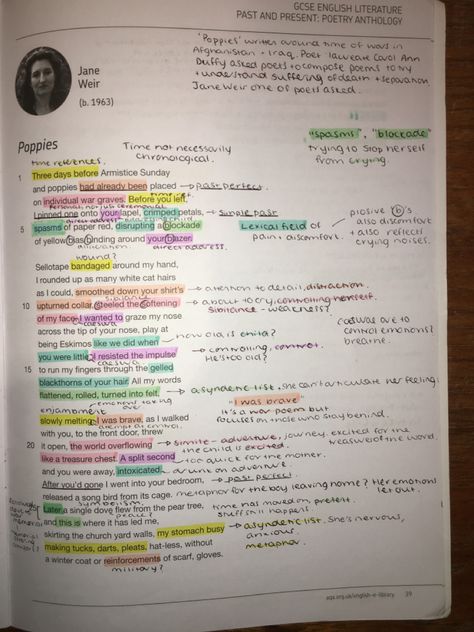 GCSE ENGLISH LITERATURE
PAST AND PRESENT: POETRY ANTHOLOGY
'Poppies' written around time of wars in
Afghanistan + Iraq. Poet laureate Carol Ann
Duffy asked poets to compose poems to try
+ understand suffering of death + separation
Jane Weir one of poets asked.
Jane
Weir
(b. 1963)
"spasms", "blockade"
trying to stop herself
from crying.
Poppies
Time not necessarily
chronological.
time references.
1 Three days before Armistice Sunday
and poppies had already been placed → past perfect
on individual war graves. Before you left,
I pinned one onto your lapel, crimped petals, → simple past
direct address
5 spasms of paper red, disrupting a blockade
Lexical field of
pain + discomfort.
plosive b's
also discomfort
+ also reflects
crying noises.
of yellow bias binding around your blazer.
alliteration direct address.
wound?
Sellotape bandaged around my hand,
I rounded up as many white cat hairs
as I could, smoothed down your shirt's → attention to detail, distraction.
sibilance
10 upturned collar, steeled the softening → about to cry, controlling herself.
Sibilance - weakness?
of my face. I wanted to graze my nose
caesura
across the tip of your nose, play at
being Eskimos like we did when → how old is child?
caesuras are to
control emotions?
breathe.
you were little. I resisted the impulse → controlling, control.
He's too old?
caesura
15 to run my fingers through the gelled
blackthorns of your hair. All my words
flattened, rolled, turned into felt, → asyndetic list. She can't articulate her feelings
emotions taking over
enjambment
slowly melting. I was brave, as I walked
"I was brave"
It's a war poem but
focuses on those who stay behind.
attempt at control.
with you, to the front door, threw
20 it open, the world overflowing → simile - adventure, journey, excited for the
the child is excited. treasures of the world.
like a treasure chest. A split second → too quick for the mother.
and you were away, intoxicated. drunk on adventure.
After you'd gone I went into your bedroom, → past perfect
released a song bird from its cage. metaphor for the boy leaving home? Her emotions
let out.
symbolism
peace?
Later a single dove flew from the pear tree, time has moved on, present.
stuff still happens
and this is where it has led me,
skirting the church yard walls, my stomach busy → asyndetic list. She's nervous,
anxious.
making tucks, darts, pleats, hat-less, without metaphor
a winter coat or reinforcements of scarf, gloves.
military?
aqa.org.uk/english-e-library 39